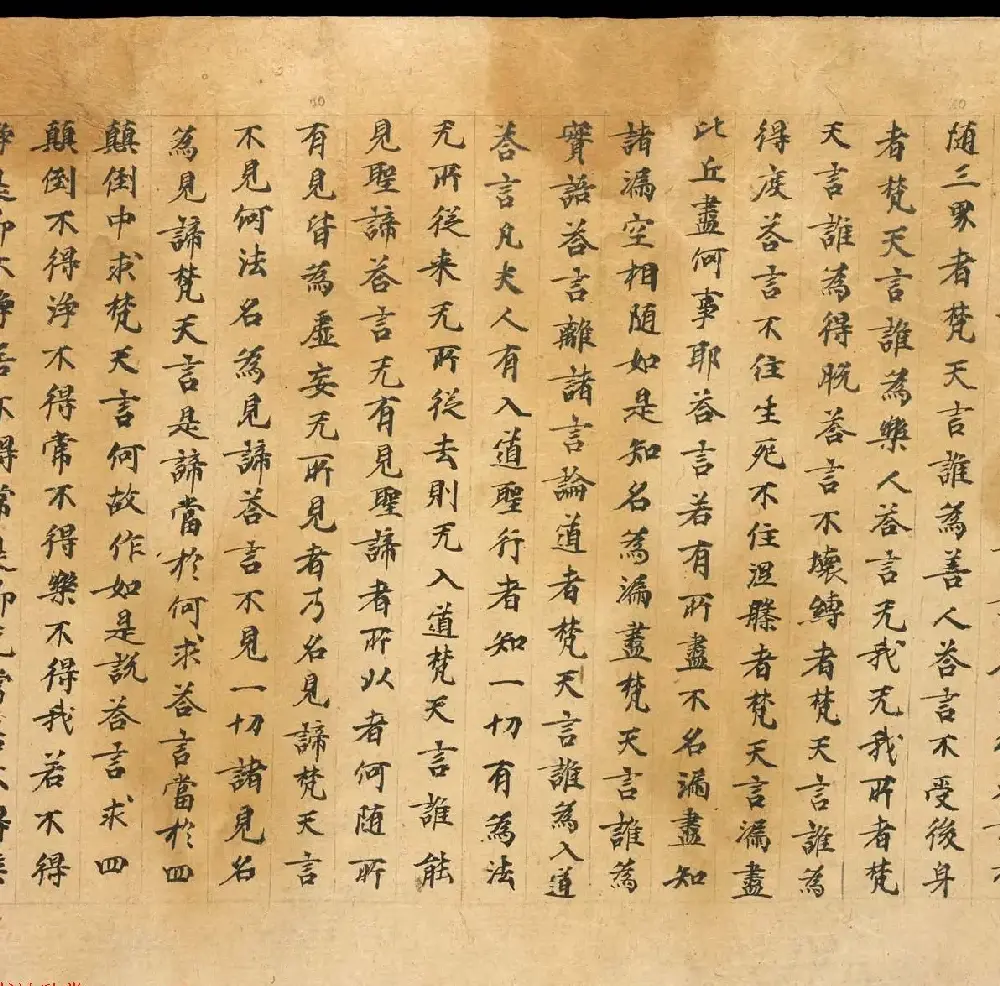 随三界者梵天言誰為善人荅言不受後身
者梵天言誰為樂人荅言无我无我所者梵
天言誰為得脱荅言不壞縛者梵天言誰為
得度荅言不住生死不住涅槃者梵天言漏盡
比丘盡何事耶荅言若有所盡不名漏盡知
諸漏空相随如是知名為漏盡梵天言誰為
實語荅言離諸言論道者梵天言誰為入道
荅言凡夫人有入道聖行者知一切有為法
无所從来无所從去則无入道梵天言誰能
見聖諦荅言无有見聖諦者所以者何随所
有見皆為虛妄无所見者乃名見諦梵天言
不見何法名為見諦荅言不見一切諸見名
為見諦梵天言是諦當於何求荅言當於四
顛倒中求梵天言何故作如是說荅言求四
顛倒不得淨不得常不得樂不得我若不得